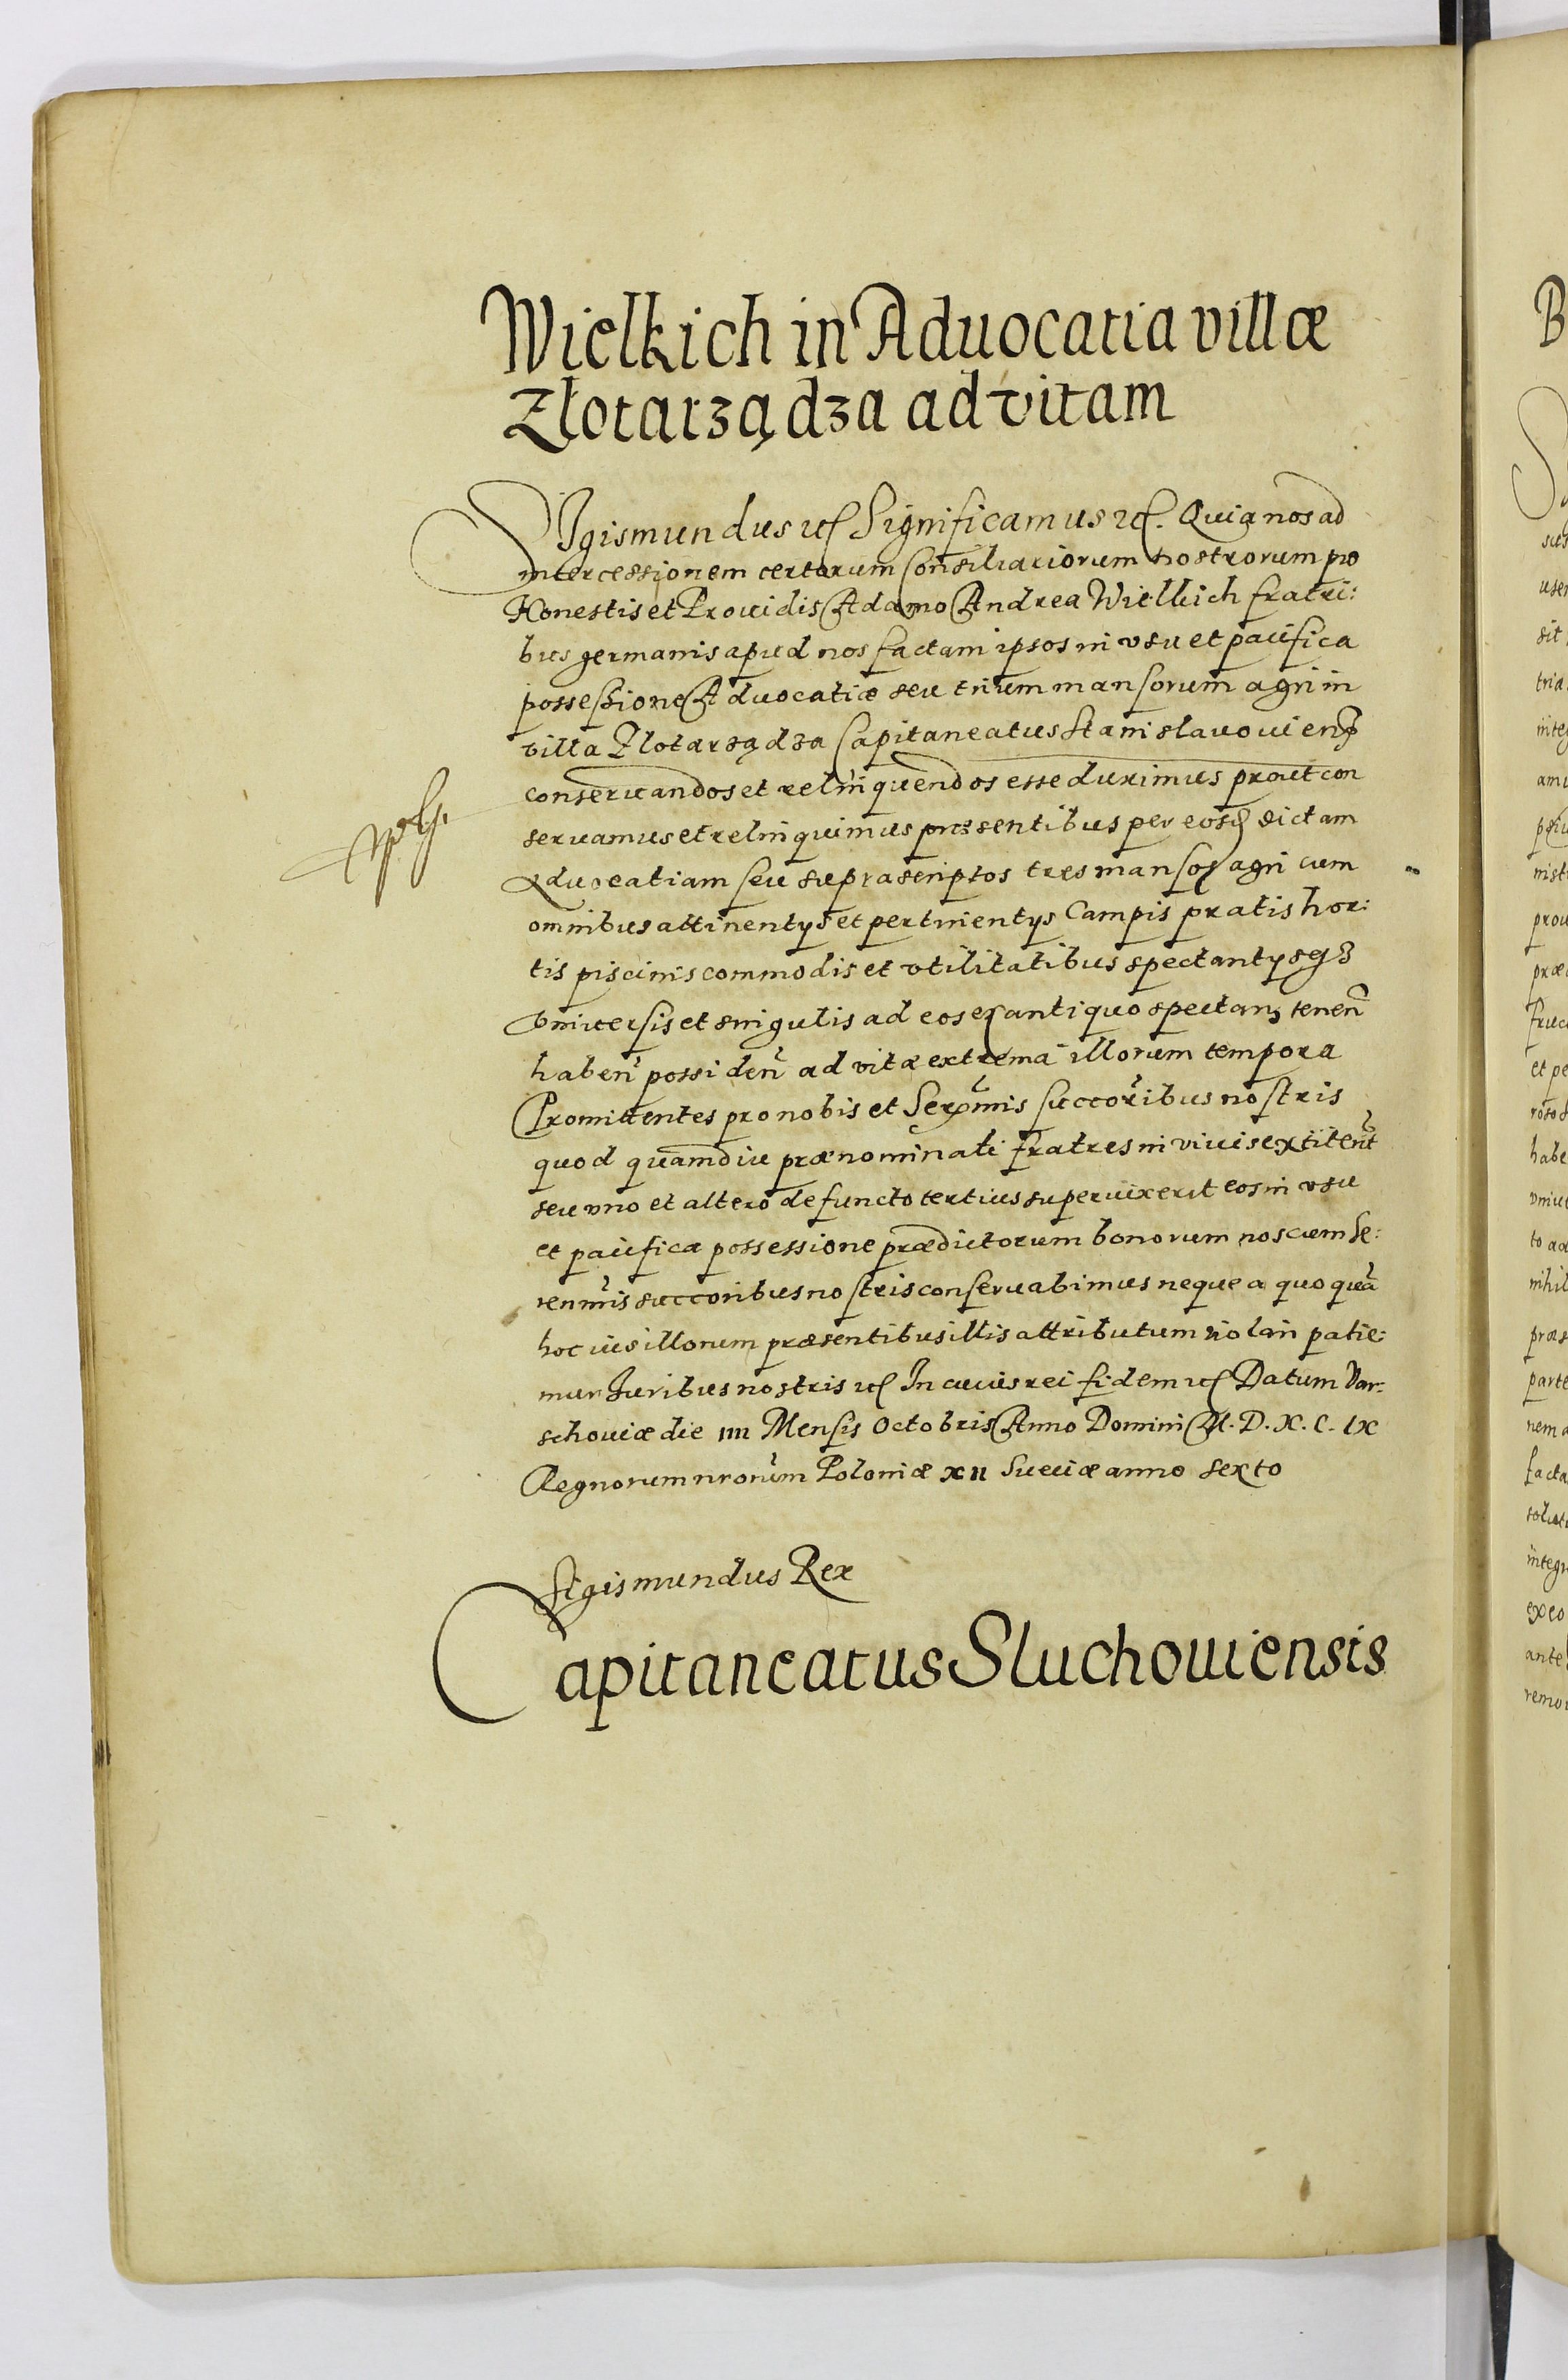 Wielkich in Aduocatia villæ
Złotarządza ad vitam
SIgismundus etc. Significamus etc. Quia nos ad
intercessionem certorum Consiliariorum nostrorum pro
Honestis et Prouidis Adamo Andrea Wielkich fratri:
bus germanis apud nos factam ipsos in vsu et pacifica
possessione Aduocatiæ seu trium mansorum agri in
villa Złotarządza Capitaneatus Stanislauouien
conseruandos et relinquendos esse duximus prout con
seruamus et relinquimus præsentibus per eosq dictam
Aduocatiam seu suprascriptos tres mansos agri cum
omnibus attinentys et pertinentys Campis pratis hor:
tis piscinis commodis et vtilitatibus spectantysq3
Vniuersis et singulis ad eos ex antiquo spectan tenen
haben possiden ad vitæ extrema illorum tempora
Promittentes pro nobis et Sermis succoribus nostris
quod quamdiu prænominati fratres in viuis extitent
seu vno et altero defuncto tertius superuixerit eos in vsu
et pacifica possessione prædictorum bonorum nos cum Se:
renmis succoribus nostris conseruabimus neque a quoquā
hoc ius illorum præsentibus illis attributum violari patie:
mur Juribus nostris etc. In cuius rei fidem etc. Datum Var:
schouiæ die IIII Mensis Octobris Anno Domini M.D.X.C.IX
Regnorum nrorum Poloniæ XII Sueciæ anno sexto
Sigismundus Rex
Capitaneatus Sluchouiensis